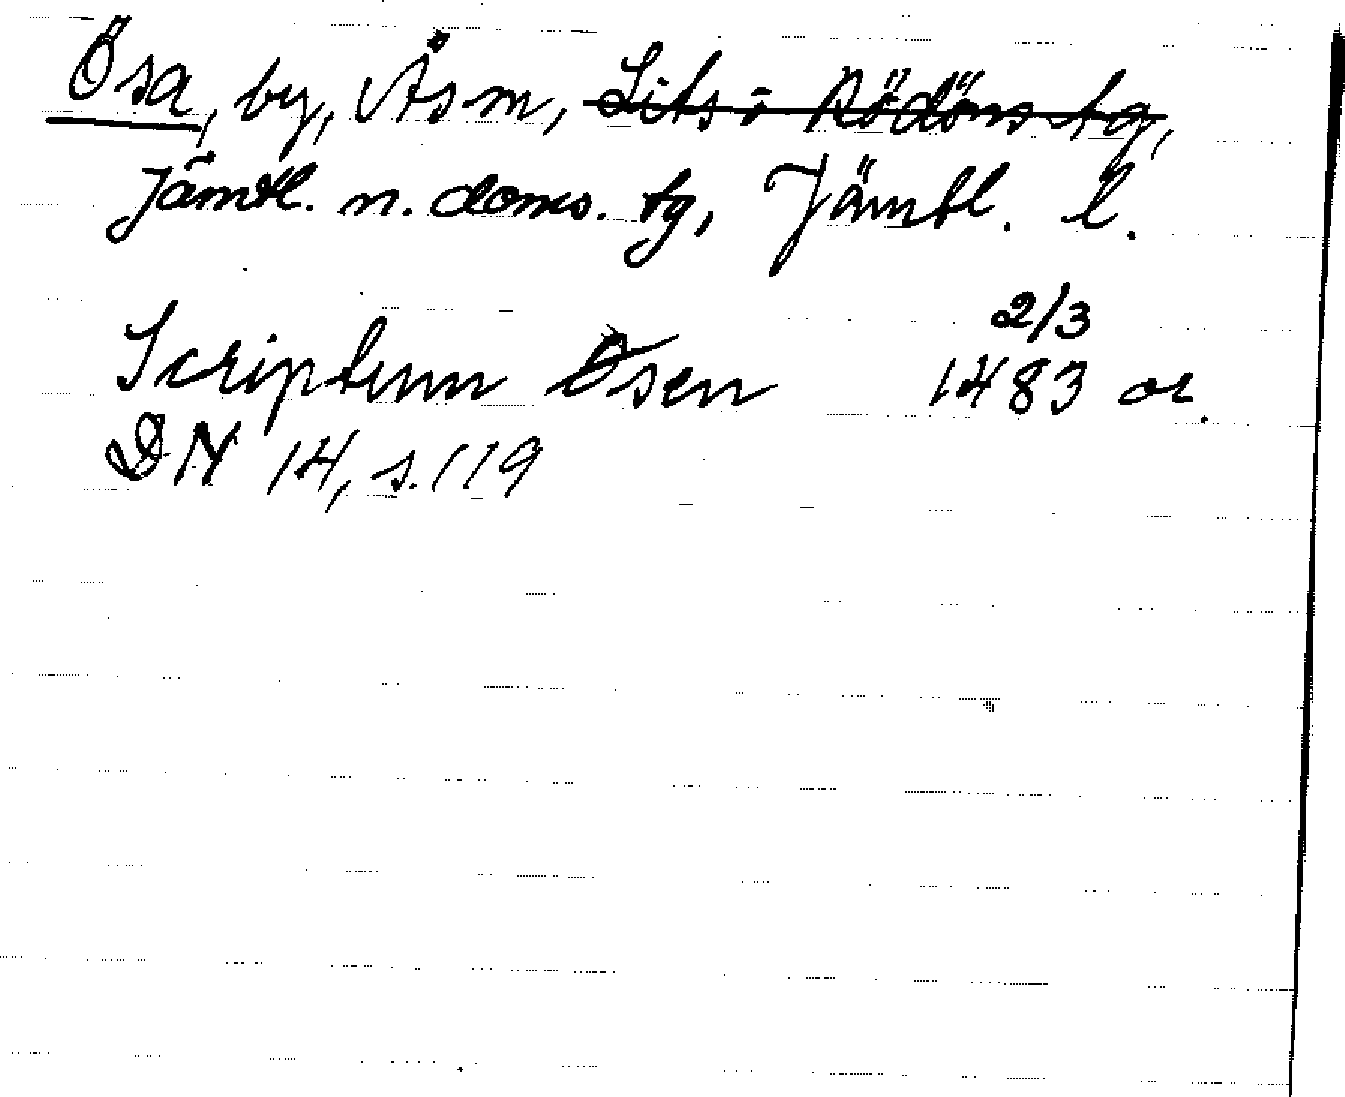 Ösa, by, Ås m, Lits o Rödöns tg,
Jämtl. n. doms. tg, Jämtl. l.
Scriptum Øsen 2/3 1483 or.
DN 14, s. 119